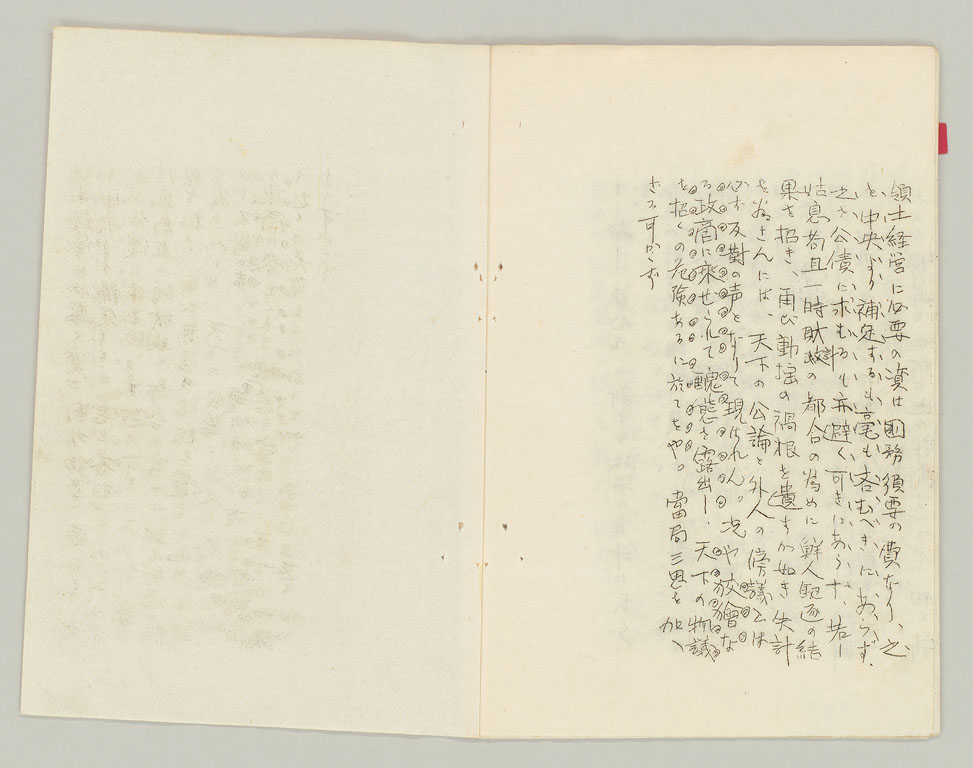 領土経営に必要の資は国務須要の費なり、之
を中央より補足するも毫も吝むべきにあらず、
之を公債に求むるも亦避く可きにあらず、若し
姑息苟且一時財政計の都合の為めに鮮人駆逐の結
果を招き、再び動揺の禍根を遺すが如き失計
を為さんには、天下の公論と外人の傍議とは
必ず反対の声となりて現はれん。况や狡獪な
る政商に乗ぜられて醜態を露出し、天下の物議
を招くの危険あるに於てをや。當局三思を加へ
ざる可らず